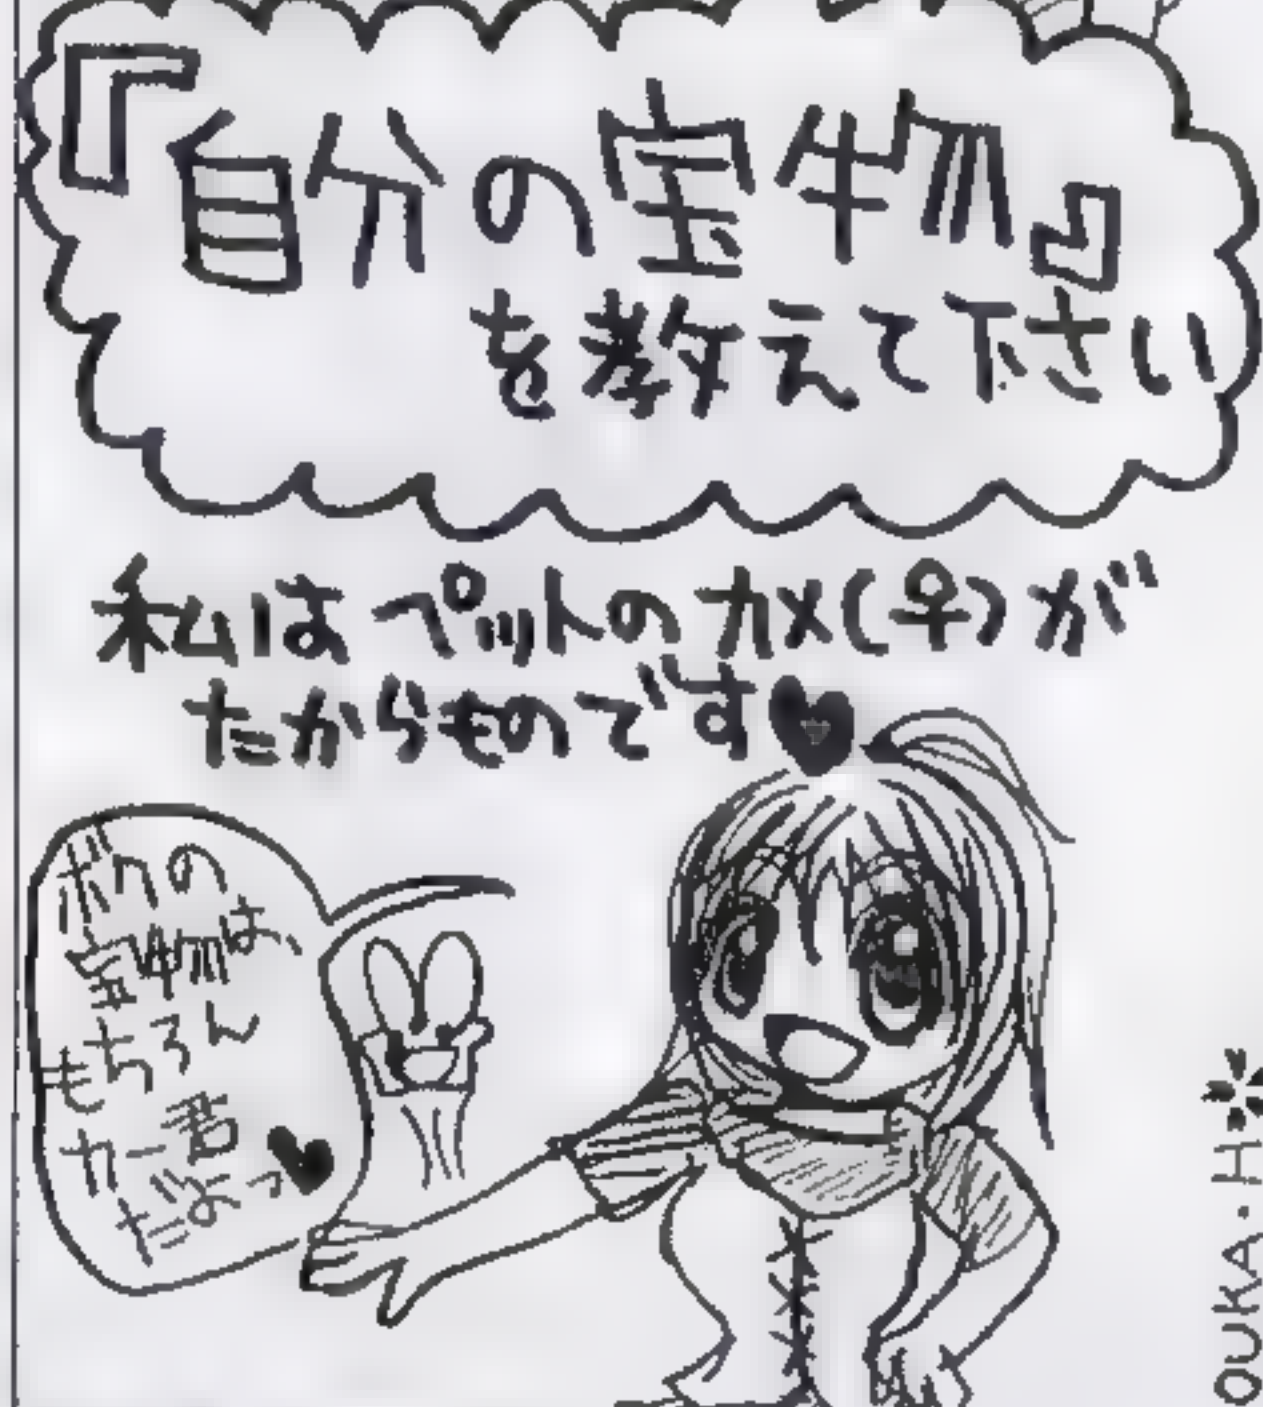 『自分の宝物』
を教えて下さい
私はペットのカメ(♀)が
たからものです♥
ボクの
宝物は、
もちろん
カー君
だよっ♥
OUKA・H